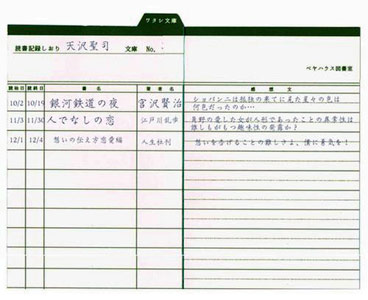 ワタシ文庫
読書記録しおり 天沢聖司 文庫 No.
ベヤハウス図書室
開始日 読終日 書名 著者名 感想文
10/2 10/19 銀河鉄道の夜 宮沢賢治 ジョバンニは孤独の果てに見た星々の色は
何色だったのか…
11/3 11/30 人でなしの恋 江戸川乱歩 角野の愛した女が人形であったことの異常性は
誰しもがもつ趣味性の発露か?
12/1 12/4 想いの伝え方恋愛編 人生社刊 想いを告げることの難しさよ、僕に勇気を!